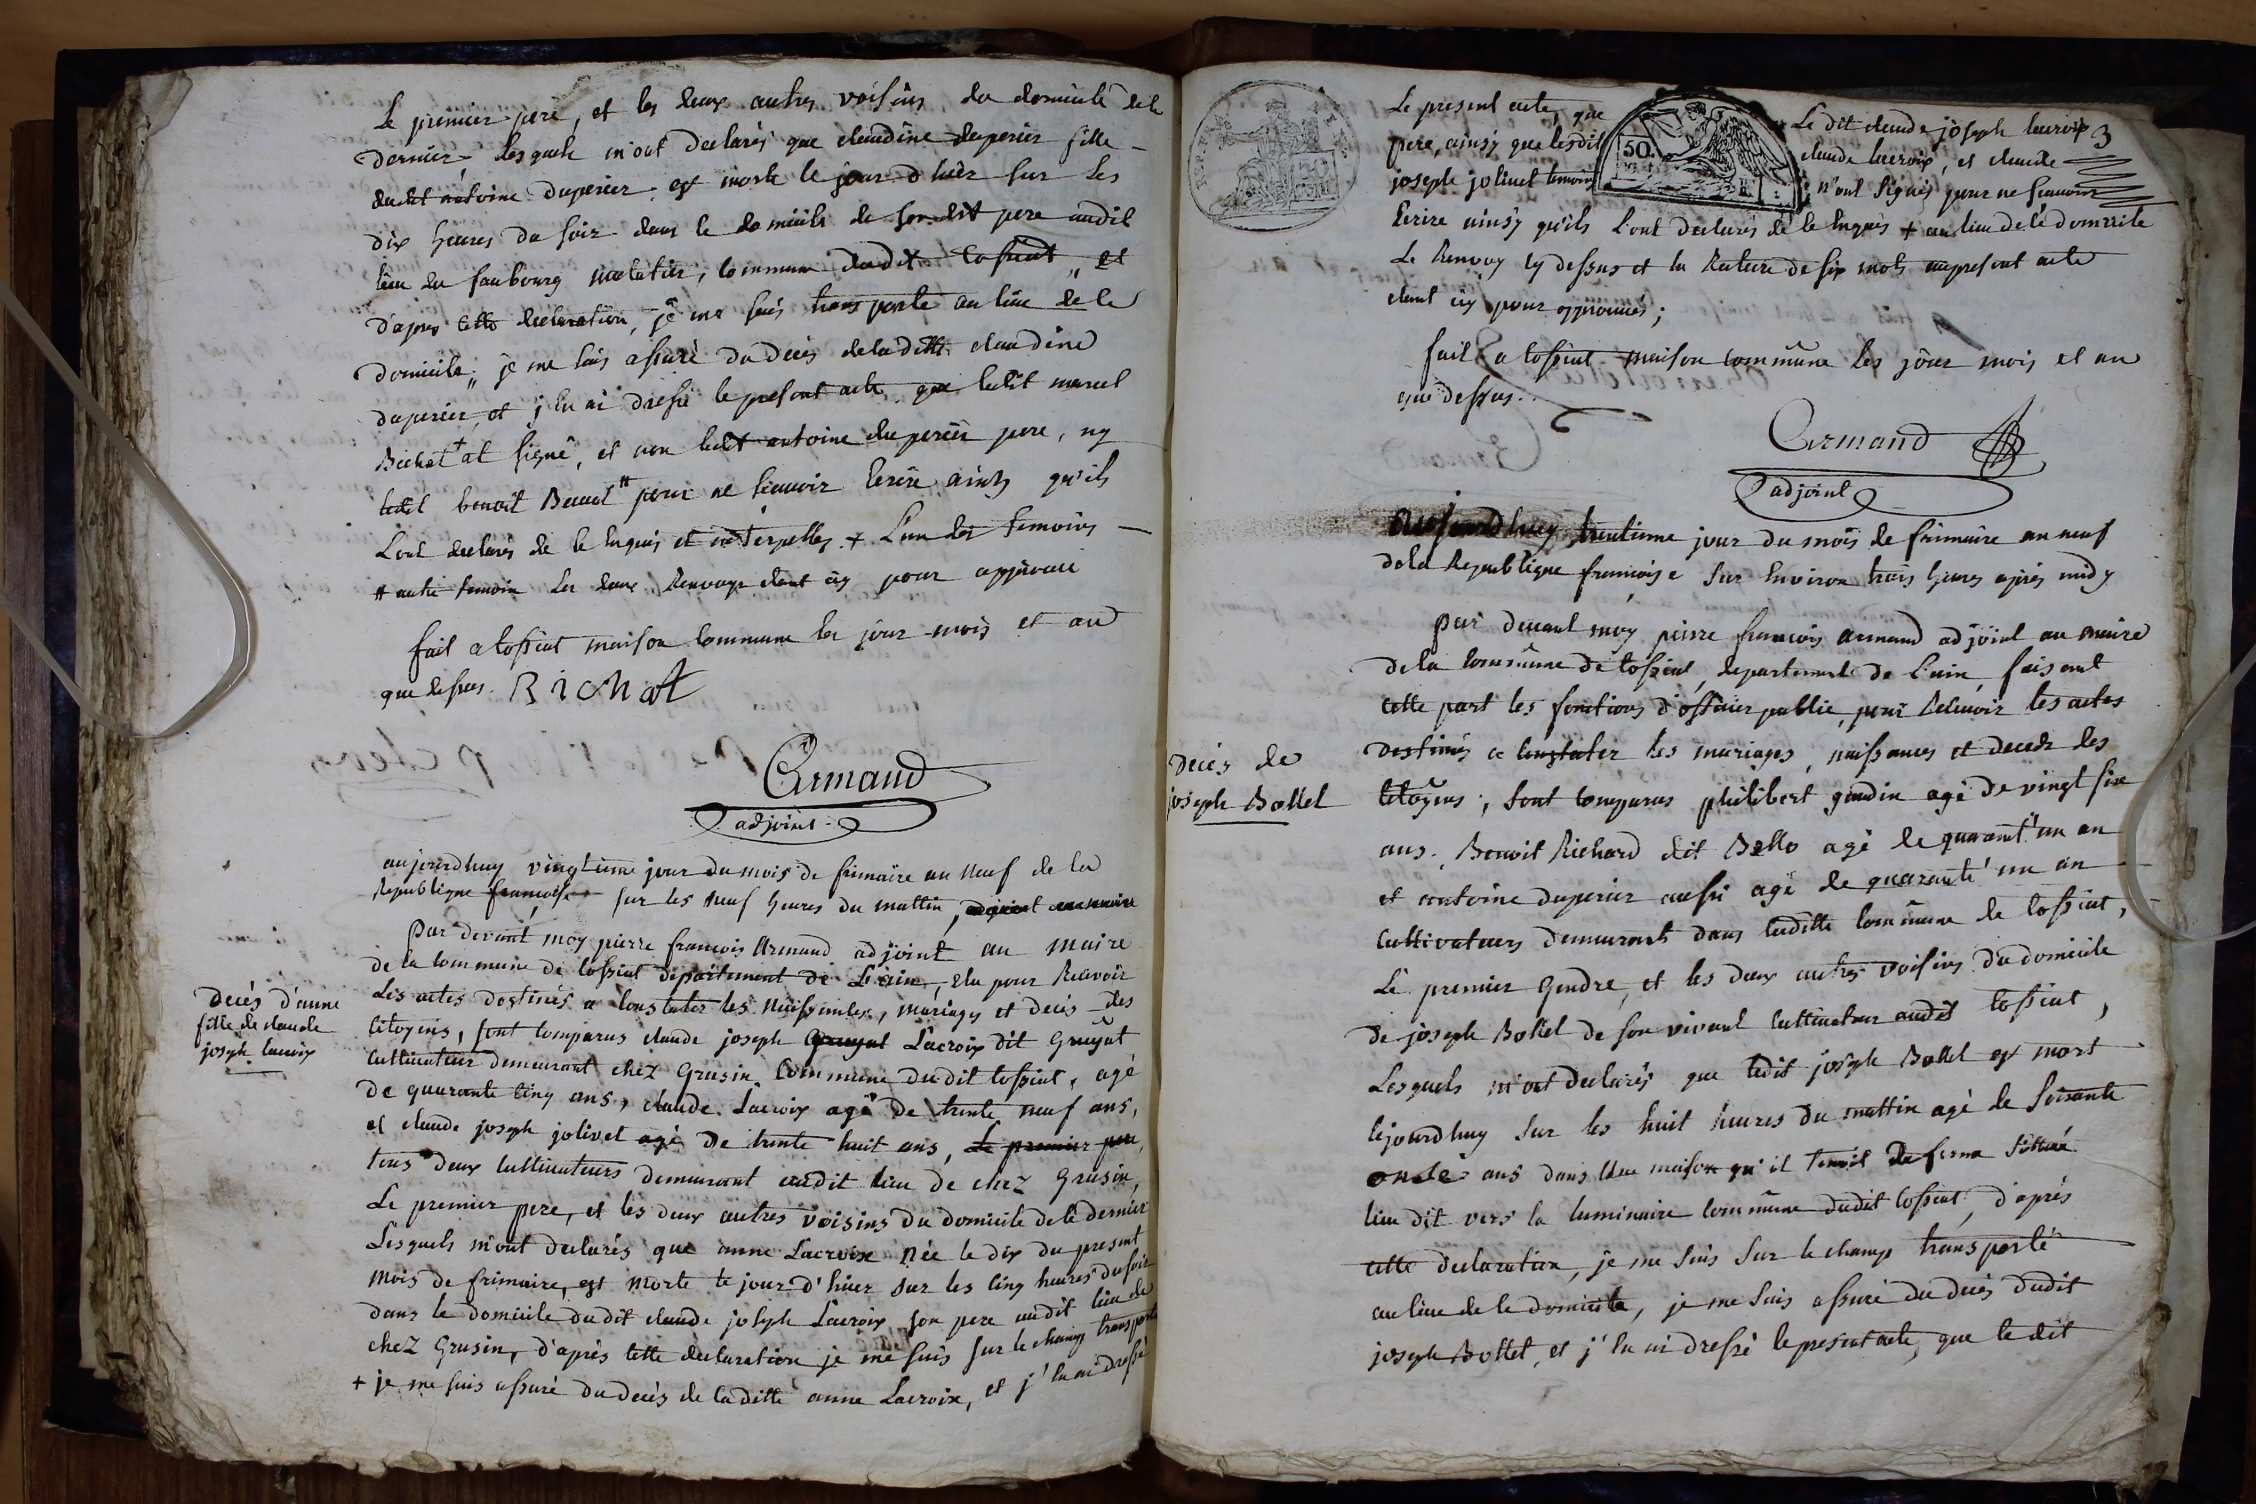 Le premier pere, et les deux autres voisins du domicile de le
dernier lesquels m'ont declarés que claudine duperier fille
dudit antoine duperier est morte le jour d'hièr sur les
dix heures du soir dans le domicile de son dit pere audit
lieu du faubourg commune dudit tossiat, et
d'apres cette declaration, je me suis transporte au lieu de le
domicile, je me suis assuré du decès de laditte claudine
duperier, et j'en ai dressé le present acte que ledit marcel
Bichat + at signé, et non ledit antoine duperier pere, ny
ledit benoit # pour ne scavoir Ecrire ainsy qu'ils
L'ont declarés de le enquis et interpellés + L'un des temoins
# autre temoin les deux Renvoys dont cy pour approuvé
fait a tossiat maison commune les jour mois et an
que dessus. BicHat
Armand
adjoint
aujourdhuy vingtieme jour du mois de frimaire an neuf de la
Republique francoise sur les neuf heures du mattin, adjoint au maire
Par devant moy pierre francois Armand adjoint au maire
de la commune de tossiat département de L'ain, elu pour Recevoir
Les actes destinés a constater les Naissances, mariages et decés des
citoyens, sont comparus claude joseph Gruyat Lacroix dit Gruyat
cultivateur demeurant chez Grusin Commune dudit tossiat, agé
de quarante cinq ans, claude Lacroix agé de trente neuf ans,
et claude joseph jolivet agé de trente huit ans, Le premier pere,
tous deux cultivateurs demeurant audit lieu de chez Grusin,
Le premier pere, et les deux autres voisins du domicile de le dernier
Lesquels m'ont declarés que anne Lacroix née le dix du present
mois de frimaire, est morte le jour d'hier sur les cinq heures du soir
dans le domicile dudit claude joseph Lacroix son pere audit lieu de
chez Grusin, d'aprés cette déclaration je me suis sur le champ transporté
+ je me suis assuré du decés de laditte anne Lacroix, et j'en ai dressé
Decés d'anne
fille de claude
joseph lacroix
Le present acte, que Le dit claude joseph lacroix 3
pere, ainsy que lesdit claude lacroix, et claude
joseph jolivet temoins n'ont signés pour ne scavoir
50.
Ecrire ainsy qu'ils L'ont declarés de le enquis + au lieu de le domicile
Le Renvoy cy dessus et la Rature de six mots au present acte
dont cy pour approuvés;
fait a tossiat maison commune les jour mois et an
que dessus.
Armand
adjoint
Aujourdhuy trentieme jour du mois de frimaire an neuf
de la Republique francoise sur Environ trois heures aprés midy
par devant moy pierre francois armand adjoint au maire
de la commune de tossiat, departement de L'ain, faisant
cette part les fonctions d'officier public, pour Recevoir les actes
destinés a constater les mariages, naissances et decedz des
citoyens, sont comparus philibert gaudin agé de vingt six
ans. Benoit Richard dit Bello agé de quarant'un an
et antoine duperier aussi agé de quarante un an
cultivateurs demeurants dans laditte commune de tossiat,
Le premier Gendre, et les deux autres voisins du domicile
de joseph Bollet de son vivant cultivateur audit tossiat,
Lesquels m'ont declarés que ledit joseph Bollet est mort
cejourdhuy sur les huit heures du mattin agé de soixante
onze ans dans une maison qu'il tenoit de ferme située
lieu dit vers la luminaire commune dudit tossiat, d'aprés
cette declaration, je me suis sur le champ transporté
au lieu de le domicile, je me suis assuré du decés dudit
joseph Bollet, et j'en ai dressé le present acte, que le dit
Decés de
joseph Bollet